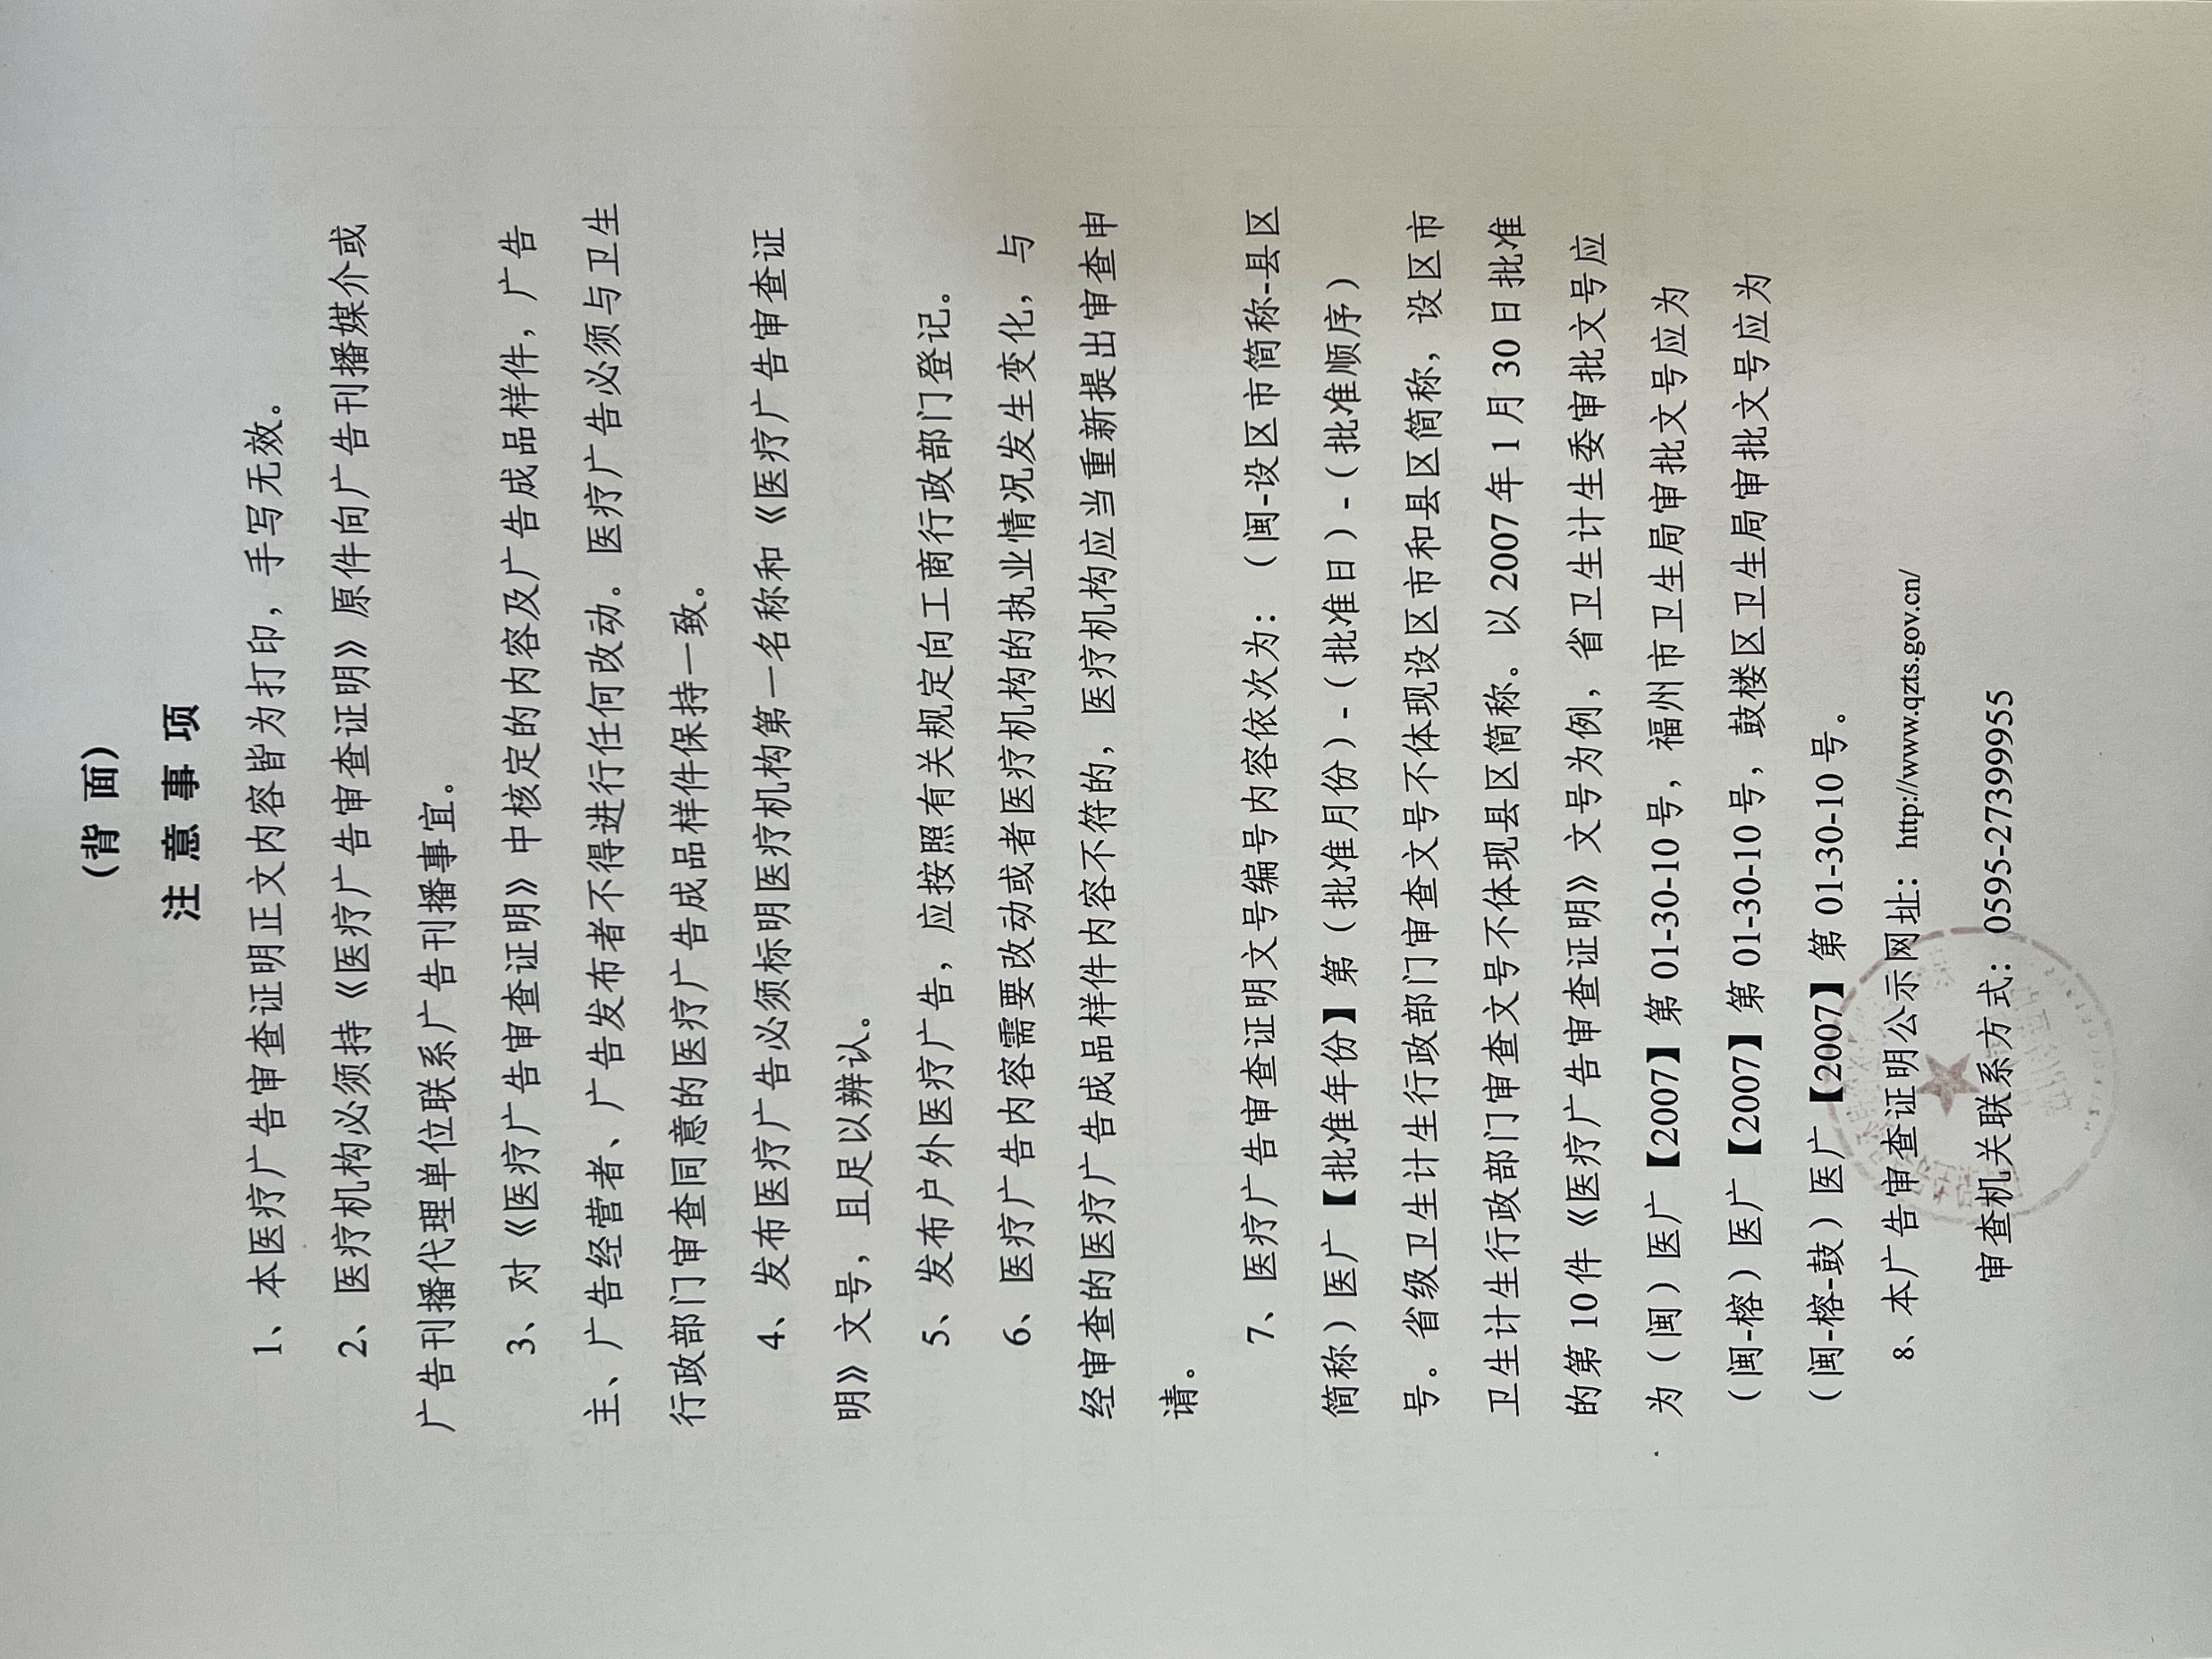 （背 面）
注 意 事 项
1、本医疗广告审查证明正文内容皆为打印，手写无效。
2、医疗机构必须持《医疗广告审查证明》原件向广告刊播媒介或
广告刊播代理单位联系广告刊播事宜。
3、对《医疗广告审查证明》中核定的内容及广告成品样件，广告
主、广告经营者、广告发布者不得进行任何改动。医疗广告必须与卫生
行政部门审查同意的医疗广告成品样件保持一致。
4、发布医疗广告必须标明医疗机构第一名称和《医疗广告审查证
明》文号，且足以辨认。
5、发布户外医疗广告，应按照有关规定向工商行政部门登记。
6、医疗广告内容需要改动或者医疗机构的执业情况发生变化，与
经审查的医疗广告成品样件内容不符的，医疗机构应当重新提出审查申
请。
7、医疗广告审查证明文号编号内容依次为：（闽-设区市简称-县区
简称）医广【批准年份】第（批准月份）-（批准日）-（批准顺序）
号。省级卫生计生行政部门审查文号不体现设区市和县区简称，设区市
卫生计生行政部门审查文号不体现县区简称。以 2007 年 1 月 30 日批准
的第 10 件《医疗广告审查证明》文号为例，省卫生计生委审批文号应
为（闽）医广【2007】第 01-30-10 号，福州市卫生局审批文号应为
（闽-榕）医广【2007】第 01-30-10 号，鼓楼区卫生局审批文号应为
（闽-榕-鼓）医广【2007】第 01-30-10 号。
8、本广告审查证明公示网址：http://www.qzts.gov.cn/
审查机关联系方式：0595-27399955